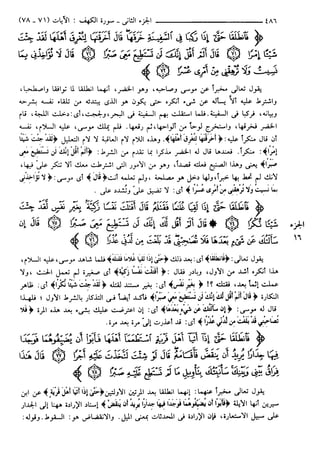 ٤٨٦ الجزء الثاني - سورة الكهف : الآيات (٧١ - ٧٨)
فَانطَلَقَا حَتَّىٰ إِذَا رَكِبَا فِي السَّفِينَةِ خَرَقَهَا قَالَ أَخَرَقْتَهَا لِتُغْرِقَ أَهْلَهَا لَقَدْ جِئْتَ
شَيْئًا إِمْرًا ۝٧١ قَالَ أَلَمْ أَقُلْ إِنَّكَ لَن تَسْتَطِيعَ مَعِيَ صَبْرًا ۝٧٢ قَالَ لَا تُؤَاخِذْنِي بِمَا
نَسِيتُ وَلَا تُرْهِقْنِي مِنْ أَمْرِي عُسْرًا ۝٧٣
يقول تعالى مخبراً عن موسى وصاحبه، وهو الخضر، أنهما انطلقا لما توافقا واصطحبا،
واشترط عليه ألاّ يسأله عن شيء أنكره حتى يكون هو الذي يبتدئه من تلقاء نفسه بشرحه
وبيانه، فركبا في السفينة. فلما استقلت بهم السفينة في البحر، ولججت، أي: دخلت اللجة، قام
الخضر فخرقها، واستخرج لوحاً من ألواحها، ثم رقعها. فلم يملك موسى، عليه السلام، نفسه
أن قال منكراً عليه: ﴿ أَخَرَقْتَهَا لِتُغْرِقَ أَهْلَهَا ﴾. وهذه اللام لام العاقبة لا لام التعليل ﴿ لَقَدْ جِئْتَ شَيْئًا
إِمْرًا ﴾: منكراً. فعندها قال له الخضر مذكراً بما تقدم من الشرط: ﴿ أَلَمْ أَقُلْ إِنَّكَ لَن تَسْتَطِيعَ مَعِيَ
صَبْرًا ﴾ يعني وهذا الصنيع فعلته قصداً، وهو من الأمور التي اشترطت معك ألا تنكر عليّ فيها،
لأنك لم تحط بها خبراً، ولها دخل هو مصلحة، ولم تعلمه أنت ﴿ قَالَ ﴾ أي موسى: ﴿ لَا تُؤَاخِذْنِي
بِمَا نَسِيتُ وَلَا تُرْهِقْنِي مِنْ أَمْرِي عُسْرًا ﴾ أي: لا تضيق عليّ وتُشدد علي.
فَانطَلَقَا حَتَّىٰ إِذَا لَقِيَا غُلَامًا فَقَتَلَهُ قَالَ أَقَتَلْتَ نَفْسًا زَكِيَّةً بِغَيْرِ نَفْسٍ لَّقَدْ جِئْتَ
شَيْئًا نُّكْرًا ۝٧٤ قَالَ أَلَمْ أَقُل لَّكَ إِنَّكَ لَن تَسْتَطِيعَ مَعِيَ صَبْرًا ۝٧٥ قَالَ إِن
سَأَلْتُكَ عَن شَيْءٍ بَعْدَهَا فَلَا تُصَاحِبْنِي قَدْ بَلَغْتَ مِن لَّدُنِّي عُذْرًا ۝٧٦
الجزء
١٦
يقول تعالى: ﴿ فَانطَلَقَا ﴾ أي: بعد ذلك ﴿ حَتَّىٰ إِذَا لَقِيَا غُلَامًا فَقَتَلَهُ ﴾ فلما شاهد موسى، عليه السلام،
هذا أنكره أشد من الأول، وبادر فقال: ﴿ أَقَتَلْتَ نَفْسًا زَكِيَّةً ﴾ أي صغيرة لم تعمل الحنث، ولا
حملت إثماً بعد، فقتلته ؟! ﴿ بِغَيْرِ نَفْسٍ ﴾ أي: بغير مستند لقتله ﴿ لَقَدْ جِئْتَ شَيْئًا نُكْرًا ﴾ أي: ظاهر
النكارة ﴿ قَالَ أَلَمْ أَقُل لَّكَ إِنَّكَ لَن تَسْتَطِيعَ مَعِيَ صَبْرًا ﴾ فأكد أيضاً في التذكار بالشرط الأول ؛ فلهذا
قال له موسى: ﴿ إِن سَأَلْتُكَ عَن شَيْءٍ بَعْدَهَا ﴾ أي: إن اعترضت عليك بشيء بعد هذه المرة ﴿ فَلَا
تُصَاحِبْنِي قَدْ بَلَغْتَ مِن لَّدُنِّي عُذْرًا ﴾ أي: قد أعذرت إليّ مرة بعد مرة.
فَانطَلَقَا حَتَّىٰ إِذَا أَتَيَا أَهْلَ قَرْيَةٍ اسْتَطْعَمَا أَهْلَهَا فَأَبَوْا أَن يُضَيِّفُوهُمَا فَوَجَدَا
فِيهَا جِدَارًا يُرِيدُ أَن يَنقَضَّ فَأَقَامَهُ قَالَ لَوْ شِئْتَ لَتَّخَذْتَ عَلَيْهِ أَجْرًا ۝٧٧ قَالَ هَٰذَا
فِرَاقُ بَيْنِي وَبَيْنِكَ سَأُنَبِّئُكَ بِتَأْوِيلِ مَا لَمْ تَسْتَطِع عَّلَيْهِ صَبْرًا ۝٧٨
يقول تعالى مخبراً عنهما: إنهما انطلقا بعد المرتين الأولتين ﴿ حَتَّىٰ إِذَا أَتَيَا أَهْلَ قَرْيَةٍ ﴾ عن ابن
سيرين أنها الأيلة ﴿ فَأَبَوْا أَن يُضَيِّفُوهُمَا فَوَجَدَا فِيهَا جِدَارًا يُرِيدُ أَن يَنقَضَّ ﴾ إسناد الإرادة ههنا إلى الجدار
على سبيل الاستعارة، فإن الإرادة في المحدثات بمعنى الميل. والانقضاض هو: السقوط. وقوله: